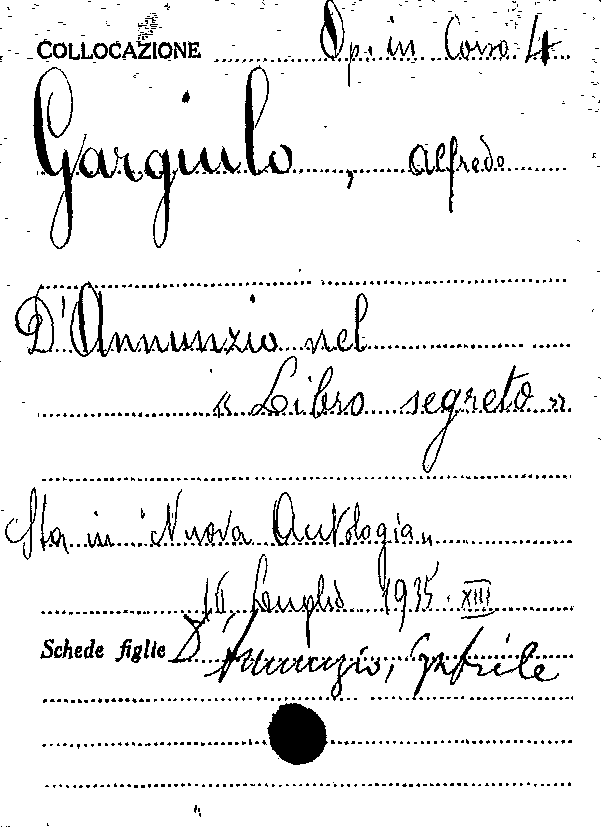 COLLOCAZIONE Op. in Corso 4
Gargiulo, Alfredo
D'Annunzio nel
« Libro segreto »
Sta in "Nuova Antologia„
Luglio 1935. XIII
Schede figlie D'Annunzio, Gabriele